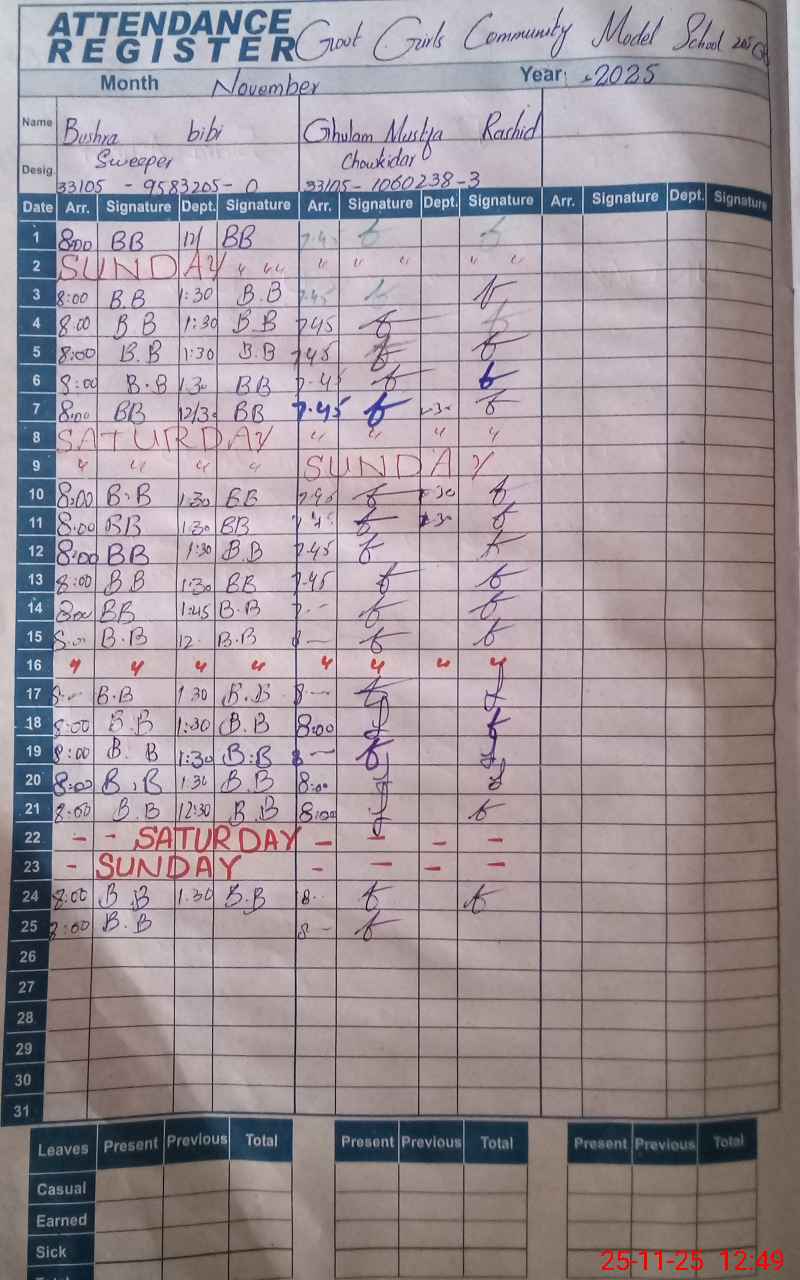 ATTENDANCE REGISTER Govt Girls Community Model School 205
Month November Year: 2025
Name Bushra bibi Ghulam Mustfa Rashid
Desig. Sweeper Chowkidar
33105 - 9583205 - 0 33105 - 1060238-3
Date Arr. Signature Dept. Signature Arr. Signature Dept. Signature Arr. Signature Dept. Signature
1 8:00 BB 12/ BB 7.45
2 SUNDAY " " " " " " " "
3 8:00 B.B 1:30 B.B 7.45
4 8.00 B.B 1:30 B.B 745
5 8:00 B.B 1:30 B.B 745
6 8:00 B.B 1.30 BB 7.45
7 8:00 BB 12/30 BB 7.45
8 SATURDAY " " " "
9 " " " " SUNDAY
10 8:00 B.B 1:30 BB 7.45
11 8:00 BB 1:30 BB
12 8:00 BB 1:30 B.B 7.45
13 8:00 BB 1:30 BB 7.45
14 8:00 BB 1:45 B.B
15 B.B 12. B.B
16 " " " " " " " "
17 B.B 1.30 B.B
18 8:00 B.B 1:30 B.B 8:00
19 8:00 B.B 1:30 B.B
20 8:00 B.B 1:30 B.B 8:00
21 8:00 B.B 12:30 B.B 8:00
22 - - SATURDAY - - - -
23 - SUNDAY - - - -
24 8:00 B.B 1.30 B.B 8--
25 8:00 B.B 8 -
26
27
28
29
30
31
Leaves Present Previous Total Present Previous Total Present Previous Total
Casual
Earned
Sick
25-11-25 12:49